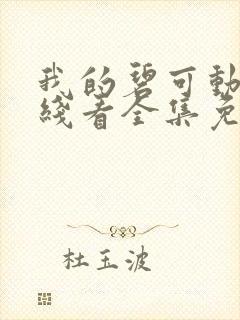 我的碧可動
綫看全集免
杜玉波